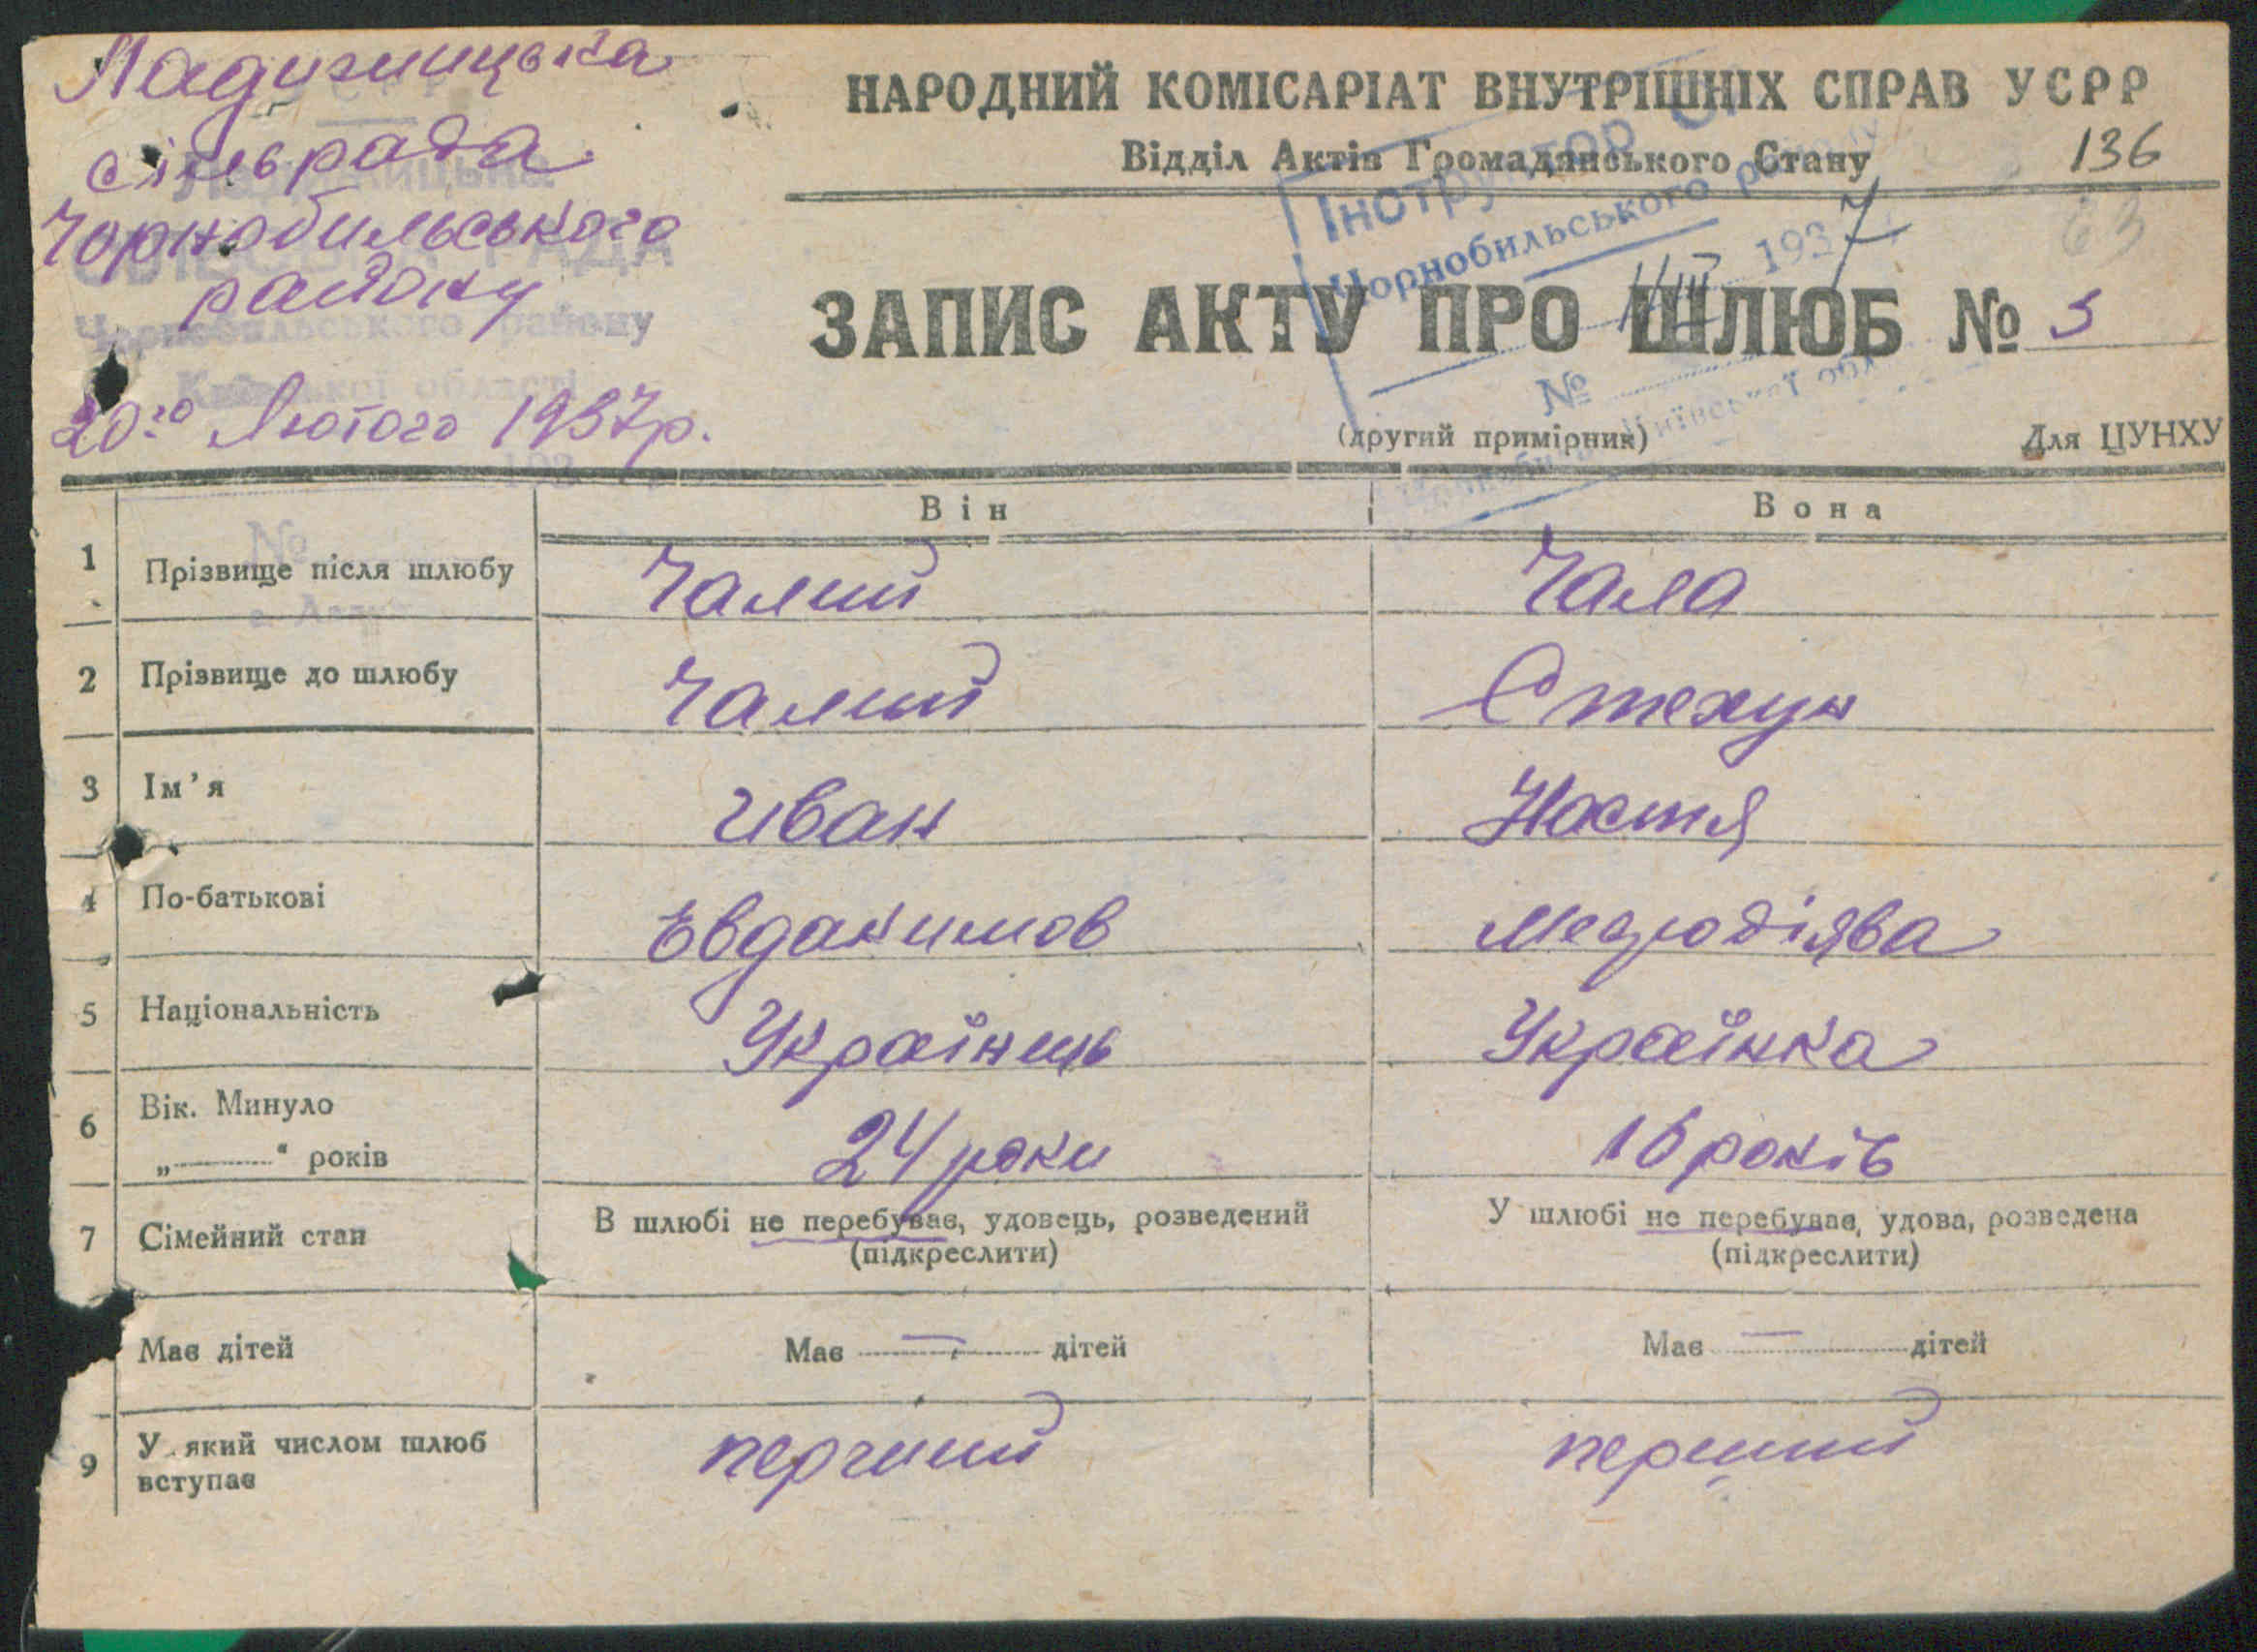 Ладижицька
сільрада
Чорнобильського
району
20го Лютого 1937р.
НАРОДНИЙ КОМІСАРІАТ ВНУТРІШНІХ СПРАВ УСРР
Відділ Актів Громадянського Стану
136
63
Інструктор
Чорнобильського
II/III 1937
№
ЗАПИС АКТУ ПРО ШЛЮБ № 5
(другий примірник)
Для ЦУНХУ
Чорнобильського району
Київської області
193
№
Він Вона
1 Прізвище після шлюбу Чалий Чала
2 Прізвище до шлюбу Чалий Стехун
3 Ім’я Иван Настя
4 По-батькові Евдакимов Мефодіява
5 Національність Українець Українка
6 Вік. Минуло
„———“ років 24 роки 16 років
7 Сімейний стан В шлюбі не перебуває, удовець, розведений У шлюбі не перебуває, удова, розведена
(підкреслити) (підкреслити)
Має дітей Має — дітей Має — дітей
9 У який числом шлюб
вступає перший перший